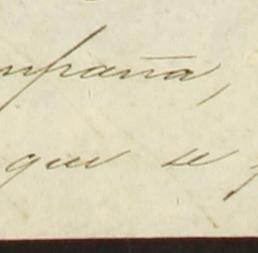 mpañia,
que se